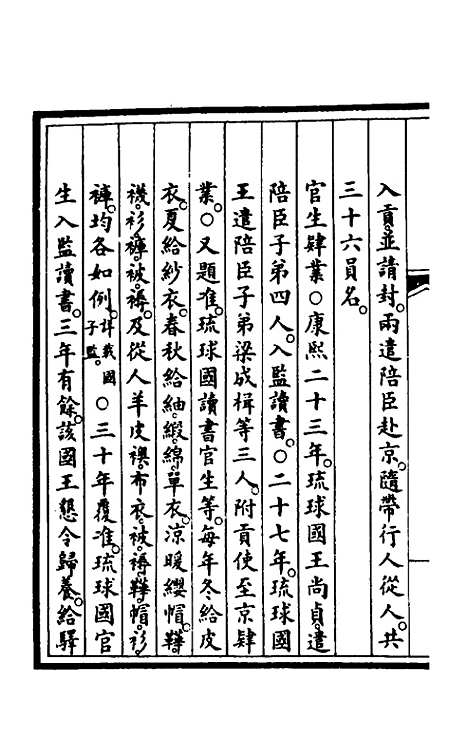 入貢。並請封。兩遣陪臣赴京。隨帶行人從人。共
三十六員名。
官生肄業○康熙二十三年。琉球國王尚貞。遣
陪臣子弟四人。入監讀書。○二十七年。琉球國
王遣陪臣子弟梁成楫等三人。附貢使至京肄
業。○又題准。琉球國讀書官生等。每年冬給皮
衣。夏給紗衣。春秋給紬。緞。綿。單衣。涼暖纓帽。鞾
襪。衫。褲。被。褥。及從人羊皮襖。布衣。被。褥。鞾。帽。衫。
褲。均各如例。詳載國子監。○三十年覆准。琉球國官
生入監讀書。三年有餘。該國王懇令歸養。給驛